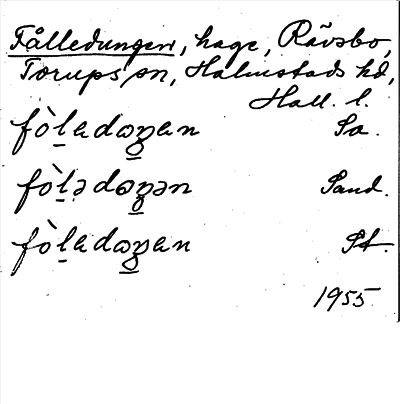 Fålledungen, hage, Rävsbo,
Torups sn, Halmstads hd,
Hall. l.
fòl̠adɷŋ̠an Sa.
fòl̠ədɷŋ̠ən Sand.
fòl̠adɷŋ̠an St.
1955